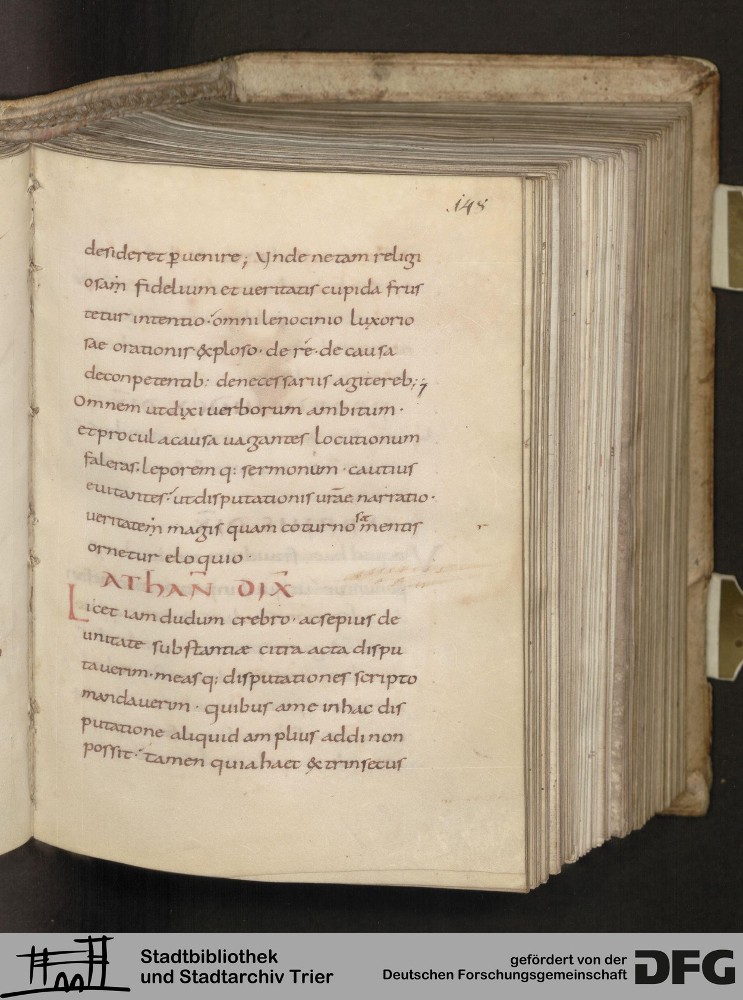 148
desideret ꝑuenire; Vnde netam religi
osam̅ fidelium et ueritatis cupida frus
tetur intentio· omni lenocinio luxorio
sae orationis &xploso· de re· de causa
deconpetentib: denecessarus agitereb;
Omnem utdixi uerborum ambitum·
etprocul acausa uagantes locutionum
faleras· leporem q: sermonum· cautius
euitantes· utdisputationis urāe narratio·
ueritatem magis quam coturnosae mentis
ornetur eloquio·
ATHAN̄ DIX̄
Licet iam dudum crebro· acsepius de
unitate substantiæ citra acta dispu
tauerim· measq; disputationes scripto
mandauerim· quibus ame inhac dis
putatione aliquid amplius addi non
possit· tamen quia haec &trinsecus
Stadtbibliothek
und Stadtarchiv Trier
gefördert von der
Deutschen Forschungsgemeinschaft
DFG